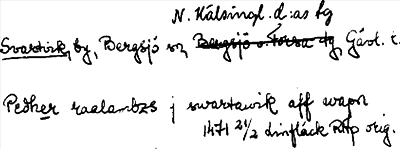 N. Hälsingl. d:as tg
Svartvik, by, Bergsjö sn, Bergsjö o. Forsa tg, Gävl. l.
Pedher raalambzs j swartawik aff wapn
1471 21/2 Lindfläck RAp orig.